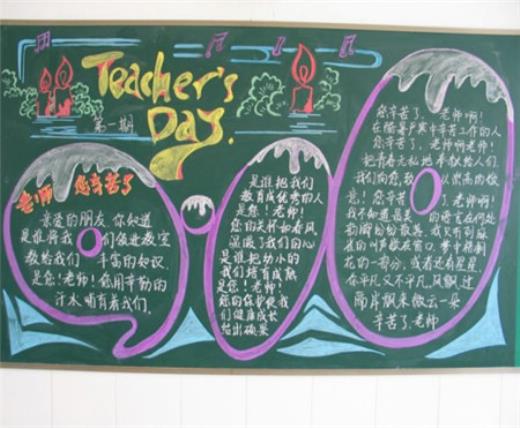 Teacher's
Day.
第一期
老师 您辛苦了
亲爱的朋友 你知道
是谁将我们 们领进教室
教给我们 丰富的知识
是您!老师!您用辛勤的
汗水哺育着我们。
是谁把我们
教育成优秀的人
是您!老师!
您的关怀如春风
温暖了我们的心
是谁把幼小的
我们培育成熟
是您!老师!
您的保护使我
们健康成长
结出硕果
您辛苦了, 老师啊!
在酷暑严寒中辛苦工作的人
您辛苦了, 老师啊老师!
把青春无私地奉献给人们,
我们向您致 以崇高的
您!您辛苦 了,老师啊!
我不知道最美 的语言在何处
花的一部分, 或者还有星星,
你平凡又不平凡,风飘过
高岸飘来微云一朵
辛苦了,老师